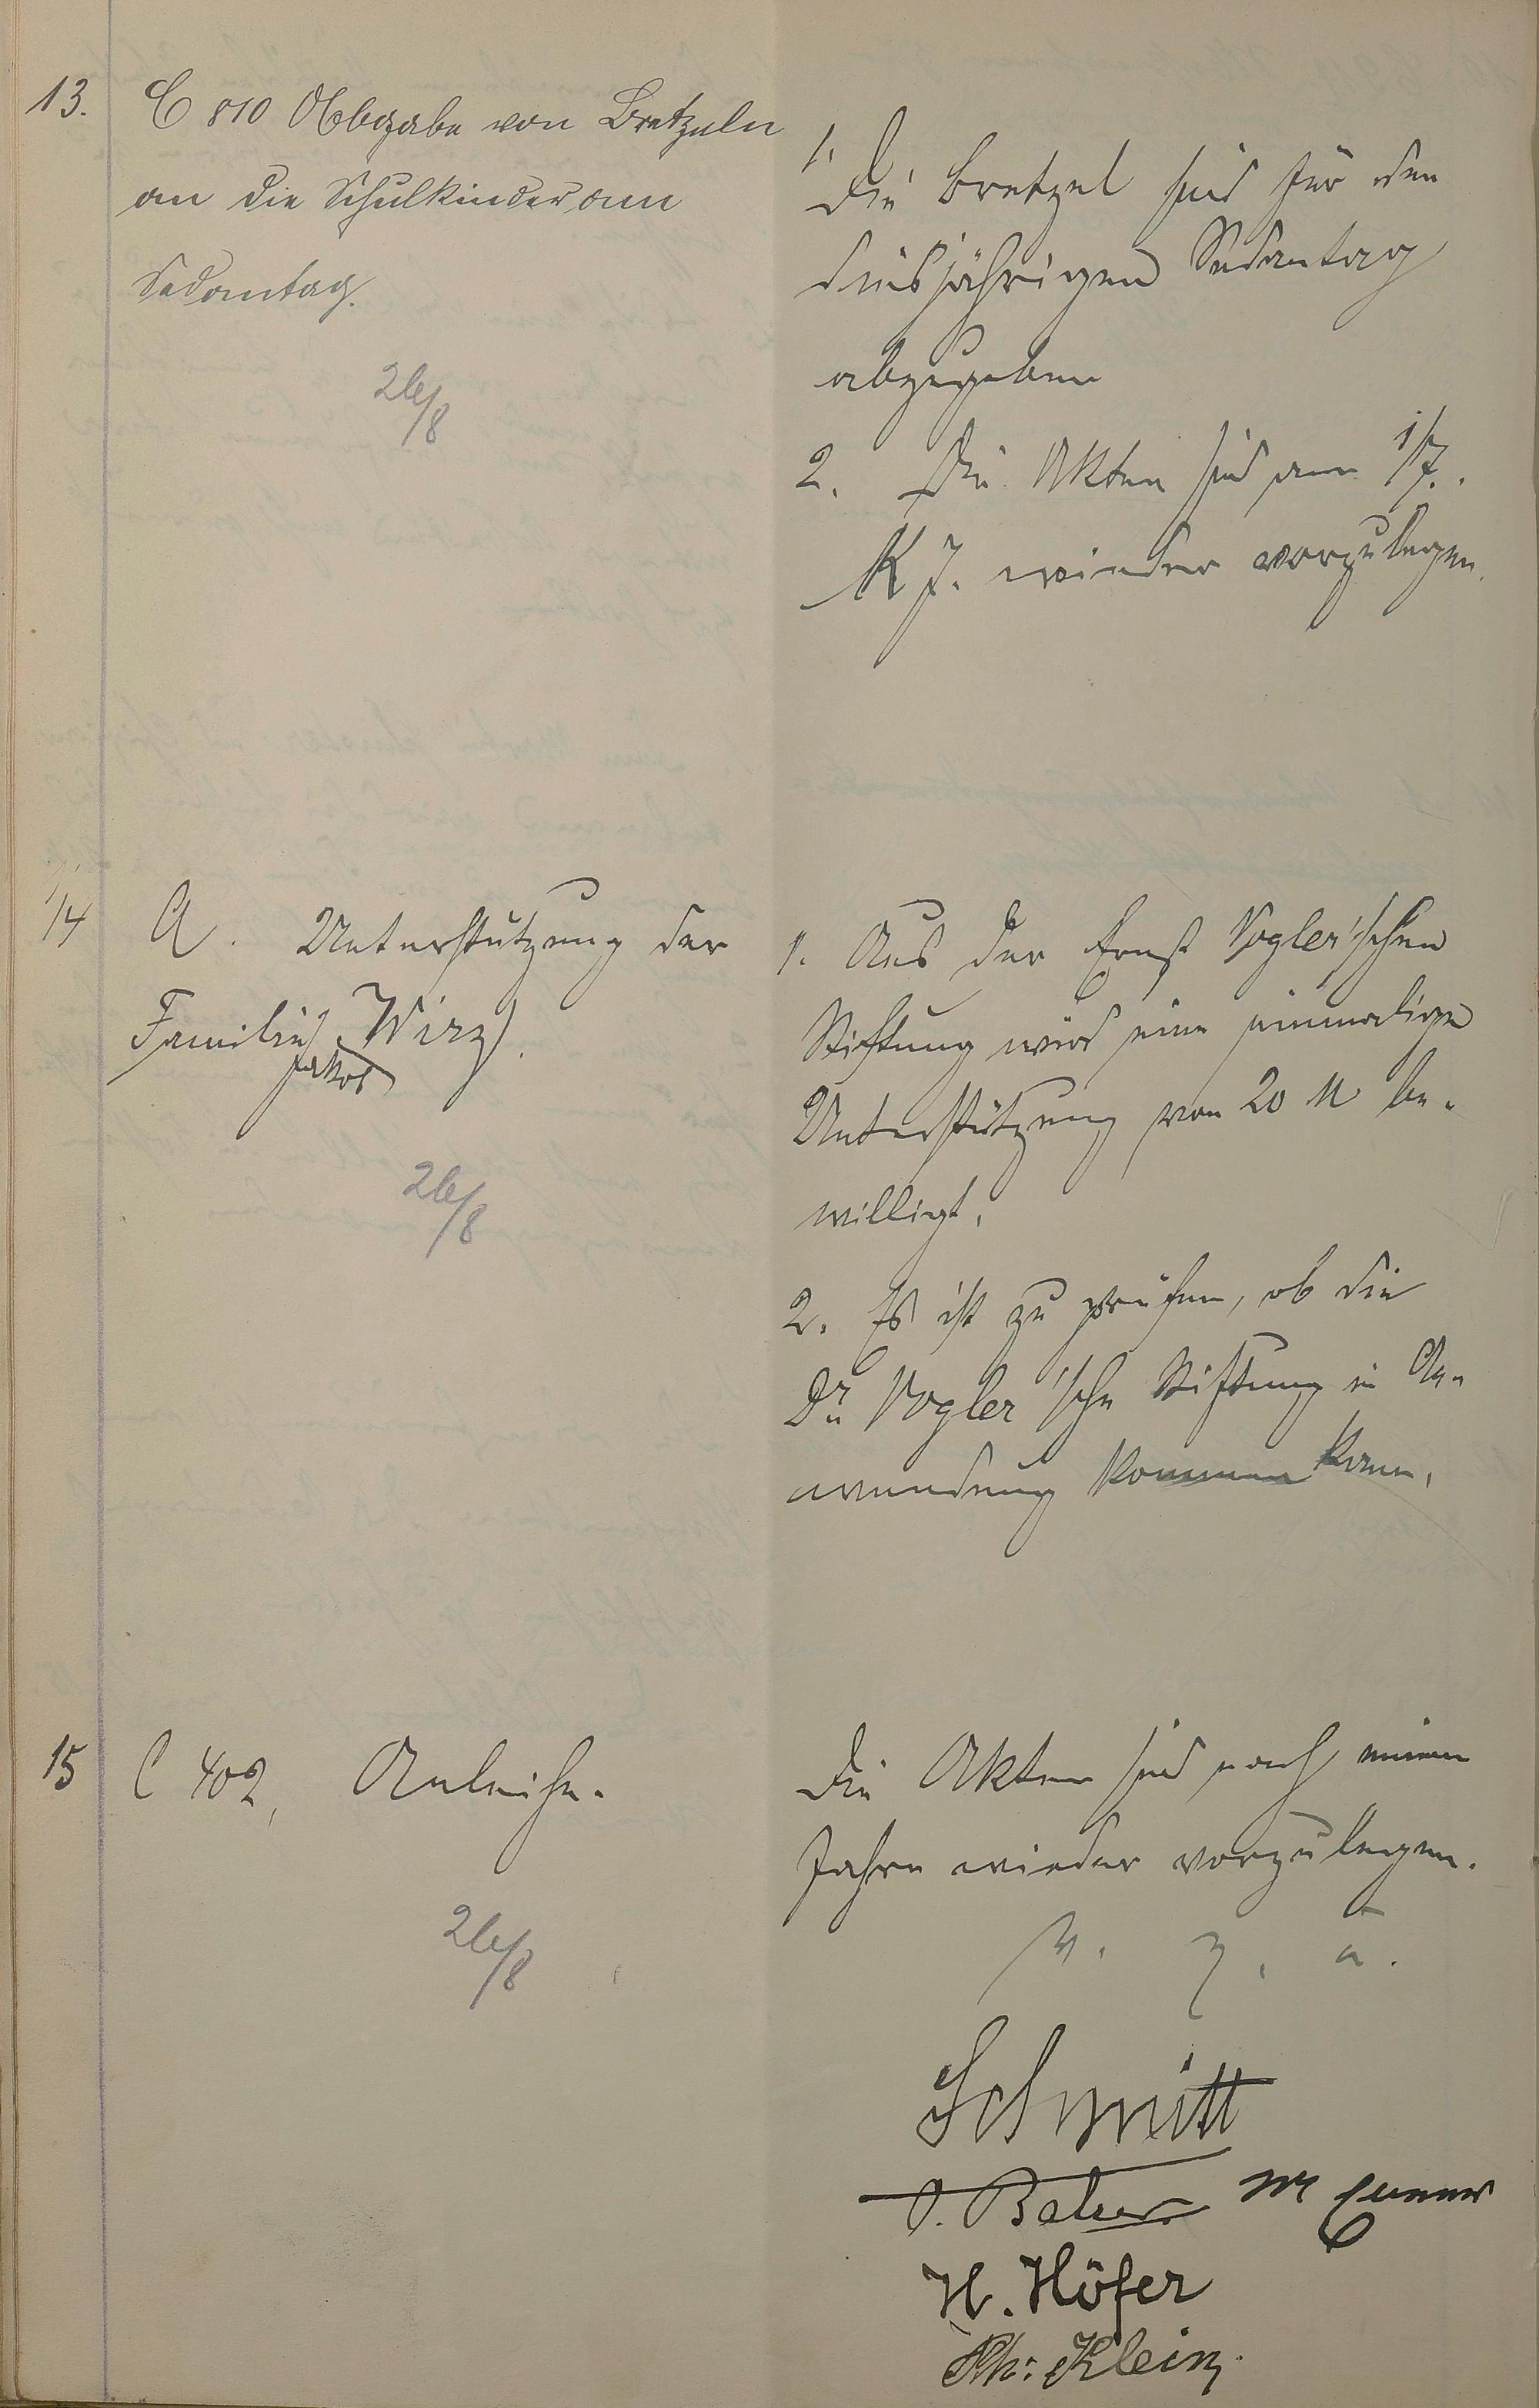 13.
C 810 Abgabe von Bretzeln
an die Schulkinder am
Sedantag.
26/8
1.
Die Bretzel sind für den
diesjährigen Sedantag
abzugeben
2. Die Akten sind am 1/7.
K J. wieder vorzulegen.
14
A. Unterstützung der
Familie Wirz.
Jakob
26/8
1. Aus der Ernst Vogler'schen
Stiftung wird eine einmalige
Unterstützung von 20 M be-
willigt.
2. Es ist zu prüfen, ob die
Dr. Vogler'sche Stiftung in An-
wendung kommen kann.
15
C 402, Anleihe.
26/8
Die Akten sind nach einem
Jahre wieder vorzulegen.
V. g. u.
Schmitt
H. Höfer
Ph: Klein.